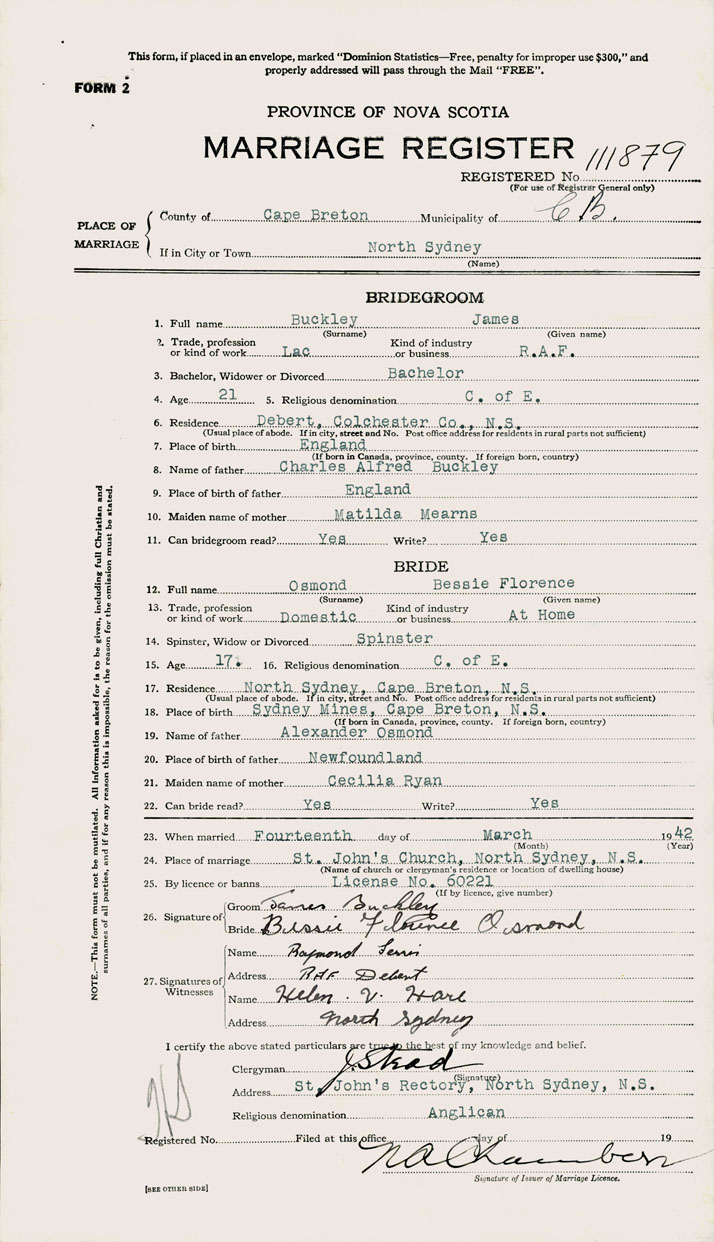 This form, if placed in an envelope, marked "Dominion Statistics—Free, penalty for improper use $300," and
properly addressed will pass through the Mail "FREE".
FORM 2
PROVINCE OF NOVA SCOTIA
MARRIAGE REGISTER
REGISTERED No. 111879
(For use of Registrar General only)
PLACE OF MARRIAGE
County of Cape Breton Municipality of C B.
If in City or Town North Sydney
(Name)
BRIDEGROOM
1. Full name Buckley James
(Surname) (Given name)
2. Trade, profession or kind of work Lac Kind of industry or business R.A.F.
3. Bachelor, Widower or Divorced Bachelor
4. Age 21 5. Religious denomination C. of E.
6. Residence Debert, Colchester Co., N.S.
(Usual place of abode. If in city, street and No. Post office address for residents in rural parts not sufficient)
7. Place of birth England
(If born in Canada, province, county. If foreign born, country)
8. Name of father Charles Alfred Buckley
9. Place of birth of father England
10. Maiden name of mother Matilda Mearns
11. Can bridegroom read? Yes Write? Yes
BRIDE
12. Full name Osmond Bessie Florence
(Surname) (Given name)
13. Trade, profession or kind of work Domestic Kind of industry or business At Home
14. Spinster, Widow or Divorced Spinster
15. Age 17. 16. Religious denomination C. of E.
17. Residence North Sydney, Cape Breton, N.S.
(Usual place of abode. If in city, street and No. Post office address for residents in rural parts not sufficient)
18. Place of birth Sydney Mines, Cape Breton, N.S.
(If born in Canada, province, county. If foreign born, country)
19. Name of father Alexander Osmond
20. Place of birth of father Newfoundland
21. Maiden name of mother Cecilia Ryan
22. Can bride read? Yes Write? Yes
23. When married Fourteenth day of March 1942
(Month) (Year)
24. Place of marriage St. John's Church, North Sydney, N.S.
(Name of church or clergyman's residence or location of dwelling house)
25. By licence or banns License No. 60221
(If by licence, give number)
26. Signature of
Groom James Buckley
Bride Bessie Florence Osmond
27. Signatures of Witnesses
Name Raymond
Address RAF Debert
Name Helen V. Hare
Address North Sydney
I certify the above stated particulars are true to the best of my knowledge and belief.
Clergyman J. Stead
(Signature)
Address St. John's Rectory, North Sydney, N.S.
Religious denomination Anglican
Registered No. Filed at this office day of 19
N A Chambers
Signature of Issuer of Marriage Licence.
[SEE OTHER SIDE]
NOTE.—This form must not be mutilated. All Information asked for is to be given, including full Christian and
surnames of all parties, and if for any reason this is impossible, the reason for the omission must be stated.